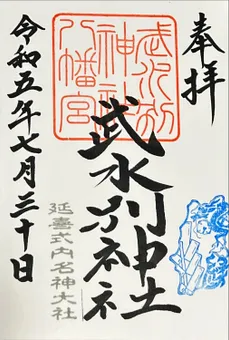 奉拝
武水別神社
武水別
神社
八幡宮
延喜式内名神大社
令和五年七月三十日